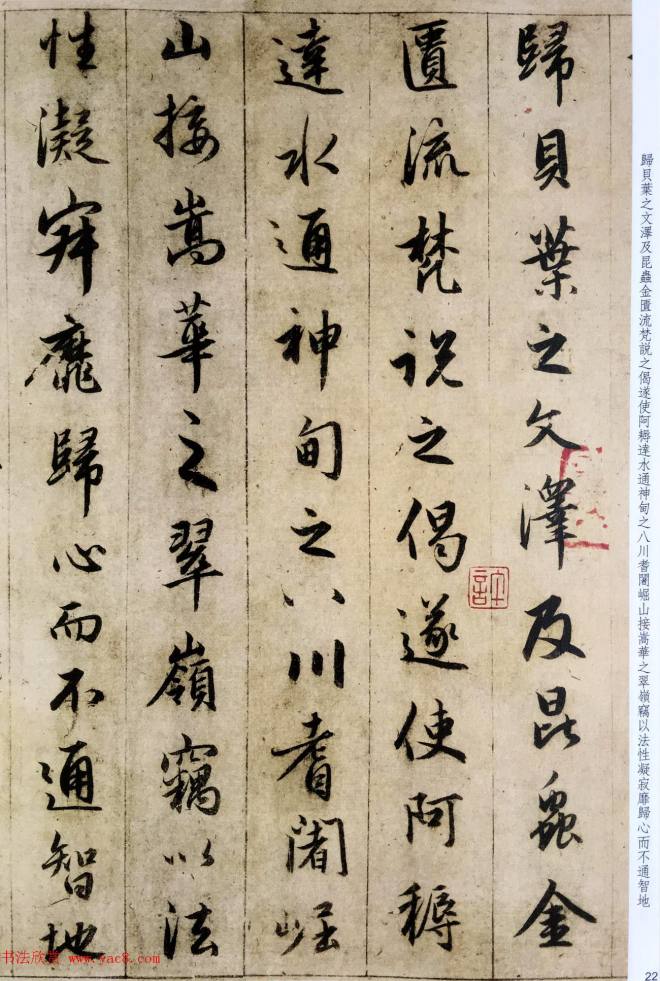 歸貝葉之文澤及昆蟲金
匱流梵説之偈遂使阿耨
達水通神甸之八川耆闍崛
山接嵩華之翠嶺竊以法
性凝寂靡歸心而不通智地
歸貝葉之文澤及昆蟲金匱流梵説之偈遂使阿耨達水通神甸之八川耆闍崛山接嵩華之翠嶺竊以法性凝寂靡歸心而不通智地
书法欣赏 www.yac8.com
22